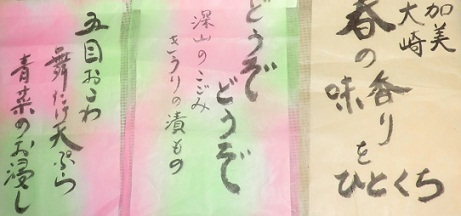 加美
大崎
春の香りを
味
ひとくち
どうぞ
どうぞ
深山のこごみ
きうりの漬もの
五目おこわ
舞たけ天ぷら
青菜のお浸し